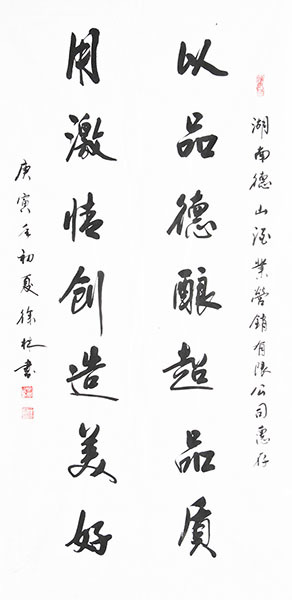 湖南德山酒業營銷有限公司惠存
以品德釀超品质
用激情創造美好
庚寅年初夏徐林书